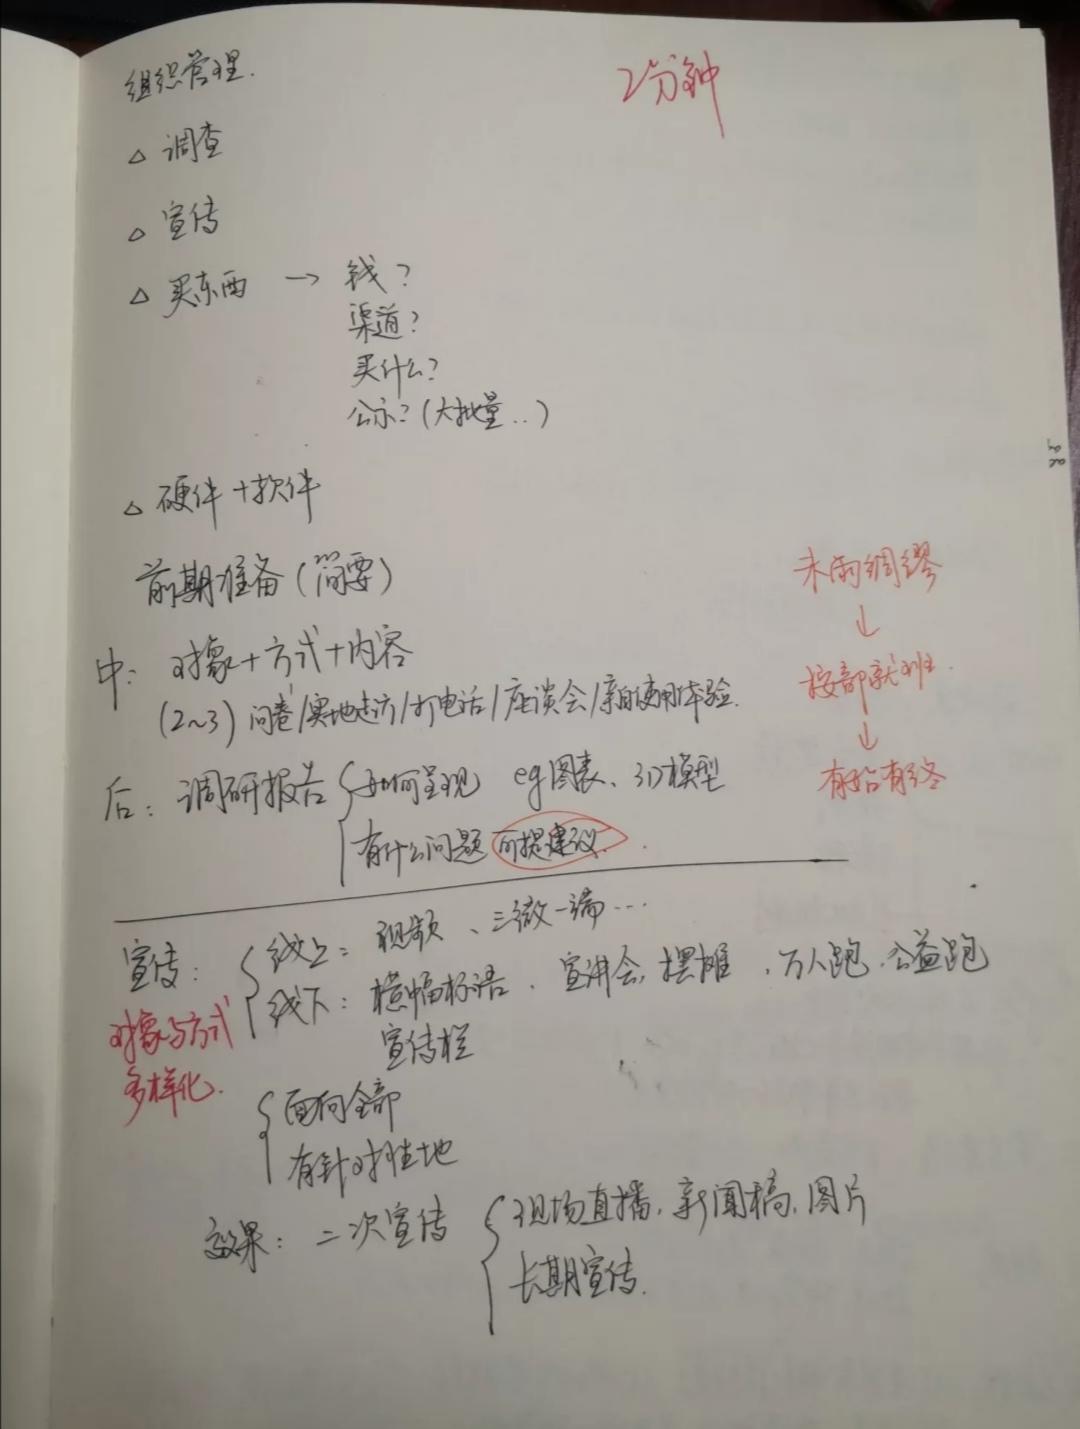 组织管理.
2分钟
△ 调查
△ 宣传
△ 买东西 → 钱?
渠道?
买什么?
公示?(大批量..)
△ 硬件+软件
前期准备(简要)
未雨绸缪
↓
按部就班.
↓
有始有终
中: 对象+方式+内容
(2~3) 问卷/实地走访/打电话/座谈会/亲自使用体验.
后: 调研报告 { 如何呈现 eg图表、3D模型
有什么问题 可提建议.
宣传: { 线上: 视频、三微一端…
线下: 横幅标语、宣讲会,摆摊、万人跑.公益跑
宣传栏
对象与方式
多样化.
{ 面向全部
有针对性地
效果: 二次宣传 { 现场直播,新闻稿,图片
长期宣传.